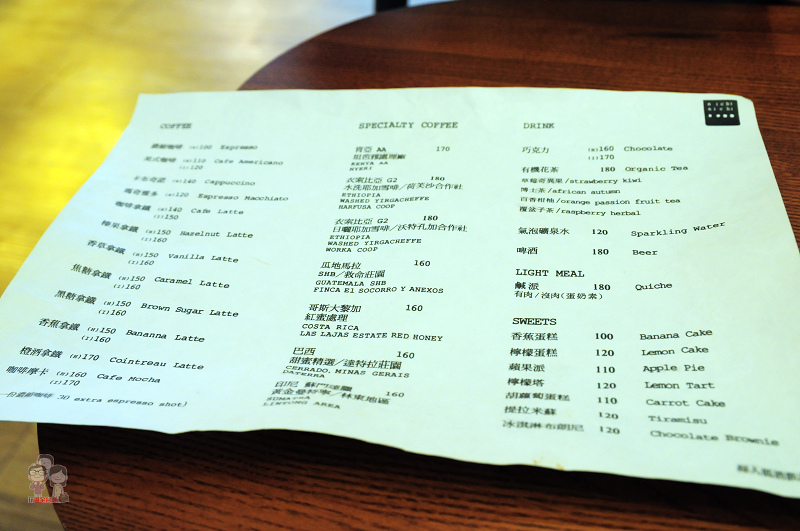 COFFEE
濃縮咖啡 (H)100 Espresso
美式咖啡 (H)110 Cafe Americano
(I)120
卡布奇諾 (H)140 Cappuccino
瑪奇雅多 (H)120 Espresso Macchiato
咖啡拿鐵 (H)140 Cafe Latte
(I)150
榛果拿鐵 (H)150 Hazelnut Latte
(I)160
香草拿鐵 (H)150 Vanilla Latte
(I)160
焦糖拿鐵 (H)150 Caramel Latte
(I)160
黑糖拿鐵 (H)150 Brown Sugar Latte
(I)160
香蕉拿鐵 (H)150 Bananna Latte
(I)160
橙酒拿鐵 (H)170 Cointreau Latte
咖啡摩卡 (H)160 Cafe Mocha
(I)170
一份濃縮咖啡 30 extra espresso shot)
SPECIALTY COFFEE
肯亞 AA 170
KENYA AA
NYERI
衣索比亞 G2 180
水洗耶加雪啡/荷芙沙合作社
ETHIOPIA
WASHED YIRGACHEFFE
HARFUSA COOP
衣索比亞 G2 180
日曬耶加雪啡/沃特孔加合作社
ETHIOPIA
WASHED YIRGACHEFFE
WORKA COOP
瓜地馬拉 160
SHB/救命莊園
GUATEMALA SHB
FINCA El SOCORRO Y ANEXOS
哥斯大黎加 160
紅蜜處理
COSTA RICA
LAS LAJAS ESTATE RED HONEY
巴西 160
甜蜜精選/達特拉莊園
CERRADO, MINAS GERAIS
DATERRA
印尼 蘇門達臘 160
黃金曼特寧/林東地區
SUMATRA
LINTONG AREA
DRINK
巧克力 (H)160 Chocolate
(I)170
有機花茶 180 Organic Tea
草莓奇異果/strawberry kiwi
博士茶/african autumn
百香柑柚/orange passion fruit tea
覆盆子茶/raspberry herbal
氣泡礦泉水 120 Sparkling Water
啤酒 180 Beer
LIGHT MEAL
鹹派 180 Quiche
有肉/沒肉(蛋奶素)
SWEETS
香蕉蛋糕 100 Banana Cake
檸檬蛋糕 120 Lemon Cake
蘋果派 110 Apple Pie
檸檬塔 120 Lemon Tart
胡蘿蔔蛋糕 110 Carrot Cake
提拉米蘇 120 Tiramisu
冰淇淋布朗尼 120 Chocolate Brownie